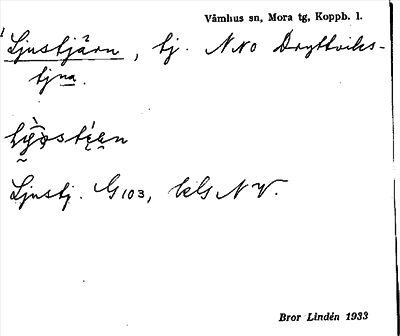 Våmhus sn, Mora tg, Koppb. l.
Ljustjärn, tj. NNO Dryttviks-
tjna.
Ljustj. G103, kls NV.
Bror Lindén 1933